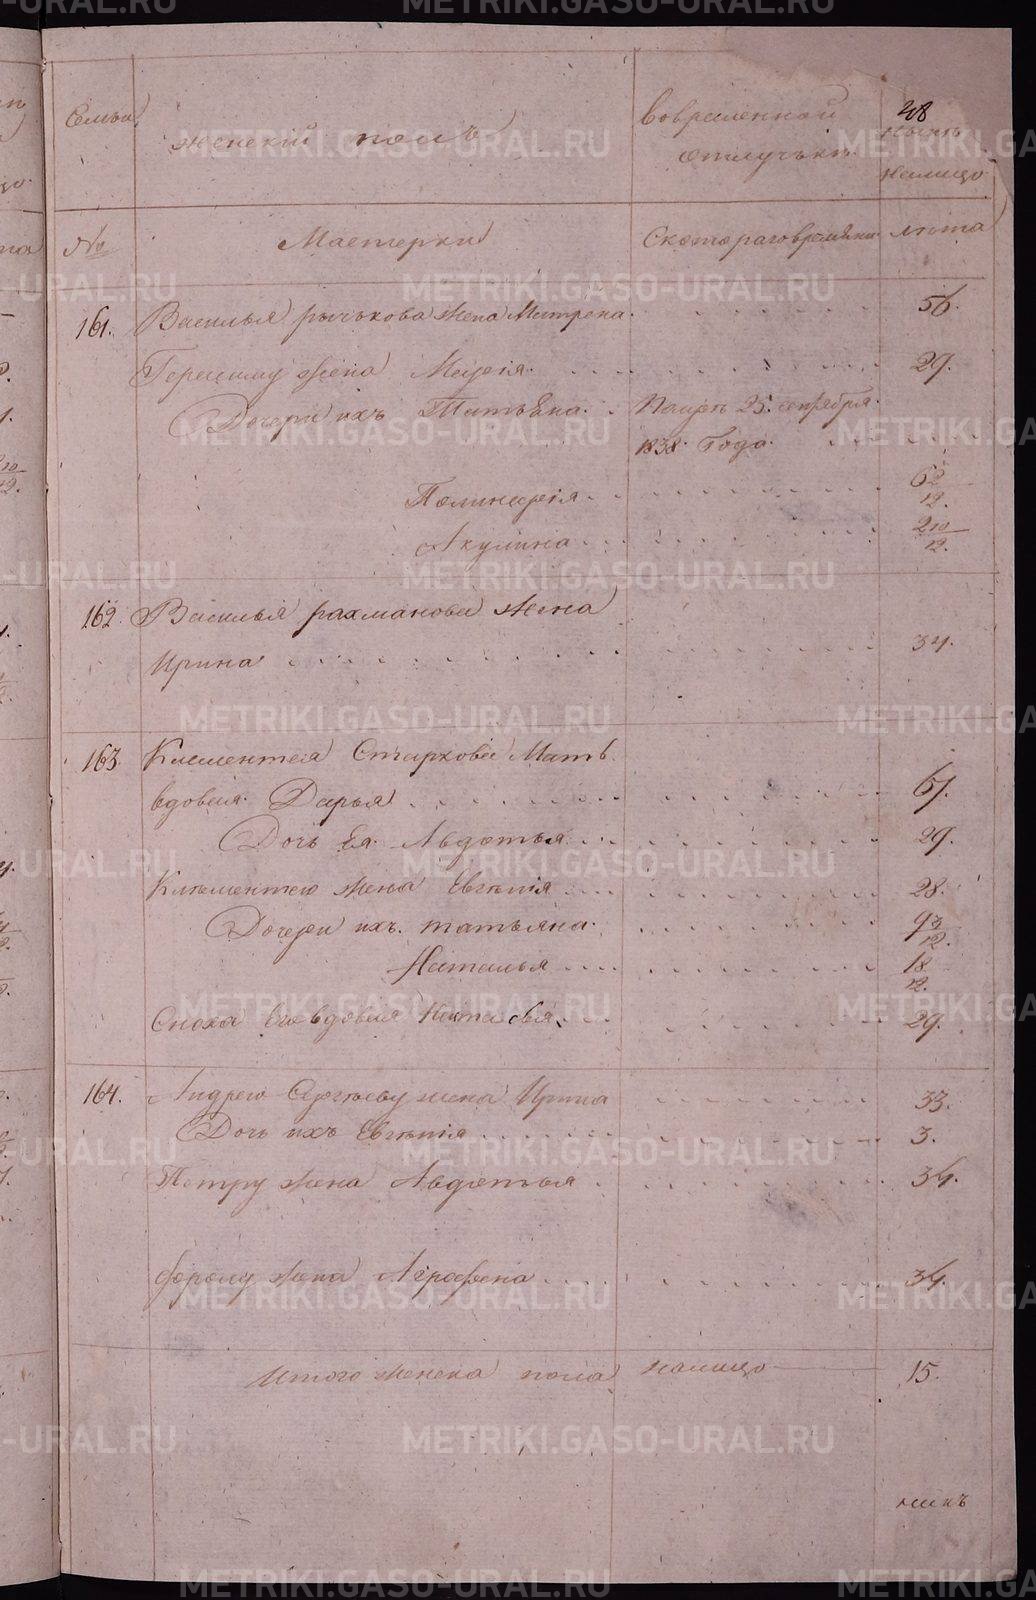 Семьи
женскій полъ
Вовременной
отлучькѣ.
208
Нынѣ
налицо
№
Мастерки
Скотораго времяни
лѣта
161.
Василья рычькова жена Матрена.
56.
Герасиму жена Марія.
29.
Дочери ихъ Татьяна.
Померла 25. сентября
1838. Года.
Полинарія
6 2/12.
Акулина
2 10/12.
162.
Василья рахманова жена
Ирина
34.
163.
Клементея Старкова Мать
вдовая Дарья
67.
Дочь Ея Авдотья
29.
Клементею жена Евгенія
28.
Дочери ихъ. татьяна.
9 3/12.
Наталья
1 8/12.
Сноха Его вдовая Наталья
29.
164.
Андрею Сергѣеву жена Ирина
33.
Дочь ихъ Евгенія
3.
Петру жена Авдотья
34.
жена Аграфена
34.
Итого женска пола налицо
15.
METRIKI.GASO-URAL.RU